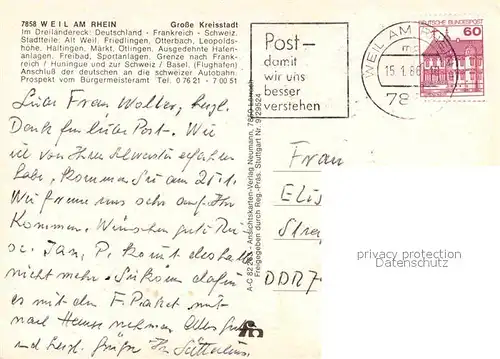 7858 WEIL AM RHEIN Große Kreisstadt
Im Dreiländereck: Deutschland - Frankreich - Schweiz.
Stadtteile: Alt Weil, Friedlingen, Otterbach, Leopolds-
höhe, Haltingen, Märkt, Ötlingen. Ausgedehnte Hafen-
anlagen, Freibad, Sportanlagen. Grenze nach Frank-
reich / Huningue und zur Schweiz / Basel. (Flughafen)
Anschluß der deutschen an die schweizer Autobahn.
Prospekt vom Bürgermeisteramt Tel. 07621 - 70051
Post-
damit
wir uns
besser
verstehen
WEIL AM RHEIN
15.1.86
78
DEUTSCHE BUNDESPOST
60
Liebe Frau Wolter, herzl.
Dank für liebe Post. Wie
wir von Ihrer Schwester erfahren
habe, kommen Sie am 25.1.
Wir freuen uns sehr auf Ihr
Kommen. Wünschen gute Rei-
se. Jan. P. kommt deshalb
nicht mehr. Sie können dafür
es mit dem F. Paket mit
nach Hause nehmen. Alles Gute
und herzl. Grüße Ihr
A-C 82 Ansichtskarten-Verlag Neumann,
Freigegeben durch Reg.-Präs. Stuttgart Nr. 9/29524
Frau
Elis
Stra
DDR 7
privacy protection
Datenschutz